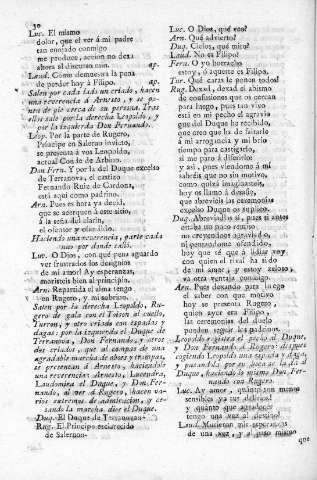 30
Luc. El mismo
dolor, que el ver á mi padre
tan enojado conmigo
me produce, accion no dexa
ahora al discurso mio. ap.
Laud. Cómo demuestra la pena
de perder hoy á Filipo. ap.
Salen por cada lado un criado, hacen
una reverencia á Arnesto, y se po-
nen de pie cerca de su persona. Tras
ellos sale por la derecha Leopoldo, y
por la izquierda Don Fernando.
Leop. Por la parte de Rugero,
Príncipe en Salerno invicto,
se presenta á vos Leopoldo,
actual Conde de Arbino.
Don Fern. Y por la del Duque excelso
de Terranova, el castizo
Fernando Ruiz de Cardona,
está aquí como padrino.
Arn. Pues es hora ya decid,
que se acerquen á este sitio,
á la seña del clarin,
el ofensor y ofendido.
Haciendo una reverencia, parte cada
uno por donde salió.
Luc. O Dios, con qué pena aguardo
ver frustrados los designios
de mi amor! Ay esperanzas,
moristeis bien al principio.
Arn. Reparada el alma tengo
en Rugero, y mi sobrino.
Salen por la derecha Leopoldo, Ru-
gero de gala con el Toison al cuello,
Turron, y otro criado con espadas y
dagas: por la izquierda el Duque de
Terranova, Don Fernando, y otros
dos criados, que al compas de una
agradable marcha de oboes y trompas,
se presentan á Arnesto, haciendo
una reverencia: Arnesto, Lucendra,
Laudomira el Duque, y Don Fer-
nando, al ver á Rugero, hacen va-
rios extremos de admiracion, y ce-
sando la marcha dice el Duque.
Duq. El Duque de Terranova
Rug. El Príncipe esclarecido
de Salerno
Luc. O Dios, qué veo?
Arn. Qué advierto?
Duq. Cielos, qué miro?
Laud. No es Filipo?
Fern. O yo borracho
estoy, ó aqueste es Filipo.
Tur. Qué caras le ponen todos!
Rug. Dexad, dexad el abismo
de confusiones que os cercan
para luego, pues tan vivo
está en mi pecho el agravio
que del Duque he recibido,
que creo que ha de faltarle
á mi arrogancia y mi brio
tiempo para castigarlo,
si me paro á diferirlo
y así, pues viendome á mí
sabréis que no sin motivo,
como quizá imaginasteis,
hoy os llamo á desafio,
que abrevieis las ceremonias
excelso Duque os suplico.
Duq. Abreviadlas sí, pues si antes
estaba un poco remiso
no creyendome agraviado,
ni pensandome ofendido,
hoy que sé que á lidiar voy
con quien el rival ha sido
de mi amor, y estoy zeloso,
ya otra ventaja consigo.
Arn. Pues dexando para luego
el saber con que motivo
hoy se presenta Rugero,
quien ayer era Filipo,
las ceremonias del duelo
pueden seguir los padrinos.
Leopoldo registra el pecho al Duque,
y Don Fernando á Rugero: despues
cogiendo Leopoldo una espada y daga,
y pasandola por su boca la da al
Duque, haciendo lo mismo Don Fer-
nando con Rugero.
Luc. Ay amor, quánto son menos
sensibles ya tus delirios!
y quánto que agradecer
tengo una vez al destino!
Laud. Murieron mis esperanzas
de una vez, y al puto mismo
que